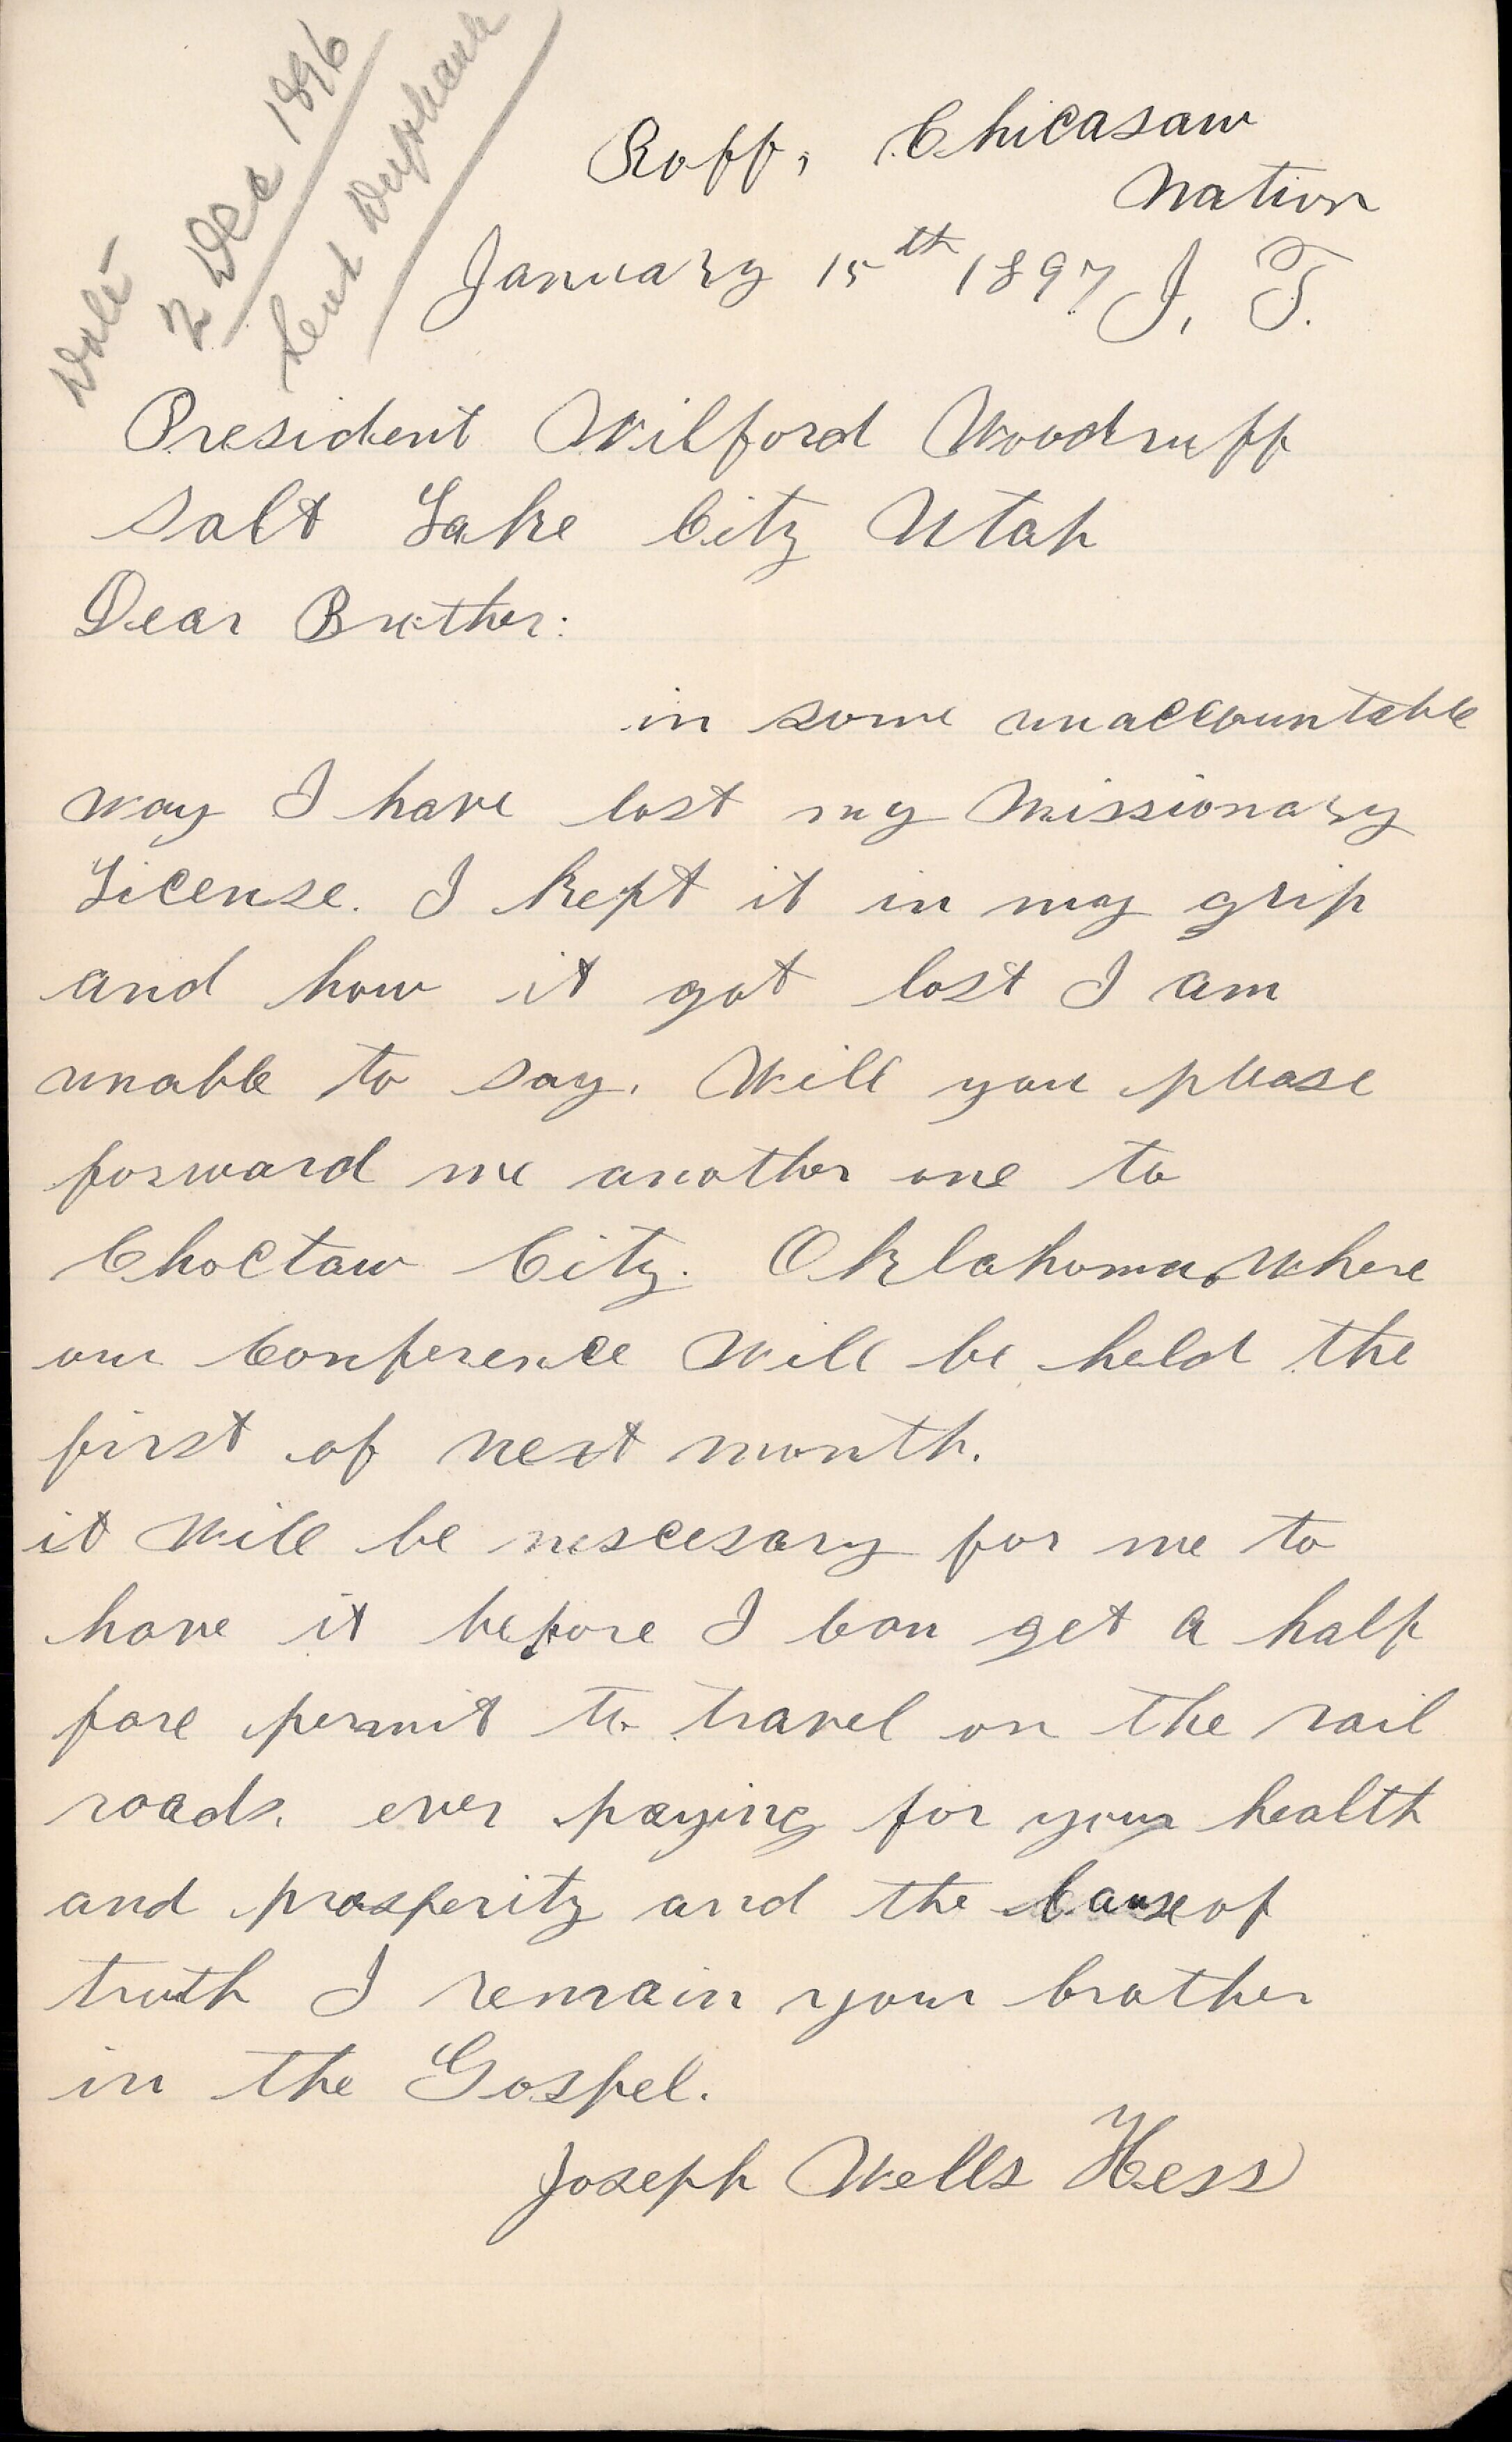 Date
2 Dec 1896
Sent Duplicate
Roff, Chicasaw
Nation
January 15th 1897 I, T.
President Wilford Woodruff
Salt Lake City Utah
Dear Brother:
in some unaccountable
way I have lost my Missionary
License. I kept it in my grip
and how it got lost I am
unable to say. Will you please
forward me another one to
Choctaw City. Oklahoma. where
our Conference Will be held the
first of next month.
it Will be nescesary for me to
have it before I Can get a half
fare permit to travel on the rail
roads. ever paying for your health
and prosperity and the Cause of
truth I remain your brother
in the Gospel.
Joseph Wells Hess